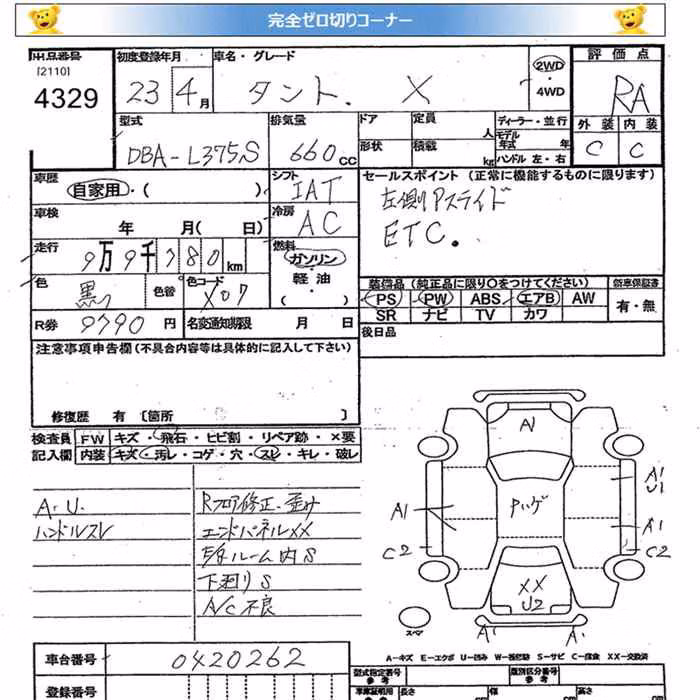 完全ゼロ切りコーナー
出品番号 初度登録年月 車名・グレード 2WD ・ 4WD 評価点
[2110]
4329 23 4月 タント. X RA
型式 排気量 ドア 定員 人 ディーラー・並行 外装 内装
DBA-L375S 660CC 形状 積載 kg モデル年式 年 ハンドル 左・右 C C
車歴 シフト セールスポイント (正常に機能するものに限ります)
自家用・( ) IAT 左側Pスライド
車検 冷房 ETC.
年 月( 日) AC
走行 燃料
9万9千780km ガソリン・軽油・( )
色 黒 色替 色コード X07
装備品 (純正品に限り○をつけてください) 新車保証書
PS PW ABS エアB AW 有・無
SR ナビ TV カワ
R券 9790円 名変通知期限 月 日
後日品
注意事項申告欄 (不具合内容等は具体的に記入して下さい)
修復歴 有 〔箇所 〕
検査員記入欄 FW キズ・飛石・ヒビ割・リペア跡・×要
内装 キズ・汚レ・コゲ・穴・スレ・キレ・破レ
A.U.
ハンドルスレ
Rフロア修正.歪み
エンドパネルXX
ルーム内S
下廻りS
A/C不良
A1
A1
U1
A1
Pハゲ
A1
C2
C2
XX
U2
A1
A1
スペア
A-キズ E-エクボ U-凹み W-善修跡 S-サビ C-腐食 XX-交換済
車台番号 0420262
登録番号
型式指定番号 参考
類別区分番号 参考
車庫証明用 参考 長さ cm 幅 cm 高さ cm